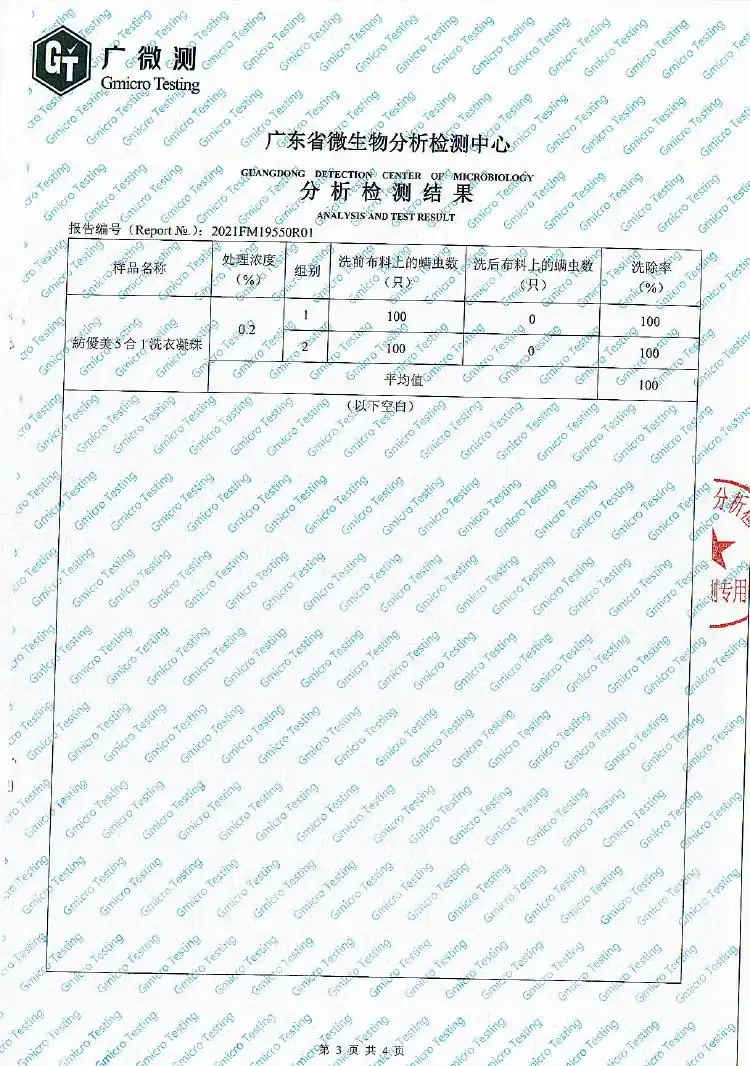 广微测
Gmicro Testing
广东省微生物分析检测中心
GUANGDONG DETECTION CENTER OF MICROBIOLOGY
分析检测结果
ANALYSIS AND TEST RESULT
报告编号（Report №.）：2021FM19550R01
样品名称 处理浓度（%） 组别 洗前布料上的螨虫数（只） 洗后布料上的螨虫数（只） 洗除率（%）
紡優美5合1洗衣凝珠 0.2 1 100 0 100
2 100 0 100
平均值 100
（以下空白）
分析检
测专用
第 3 页 共 4 页